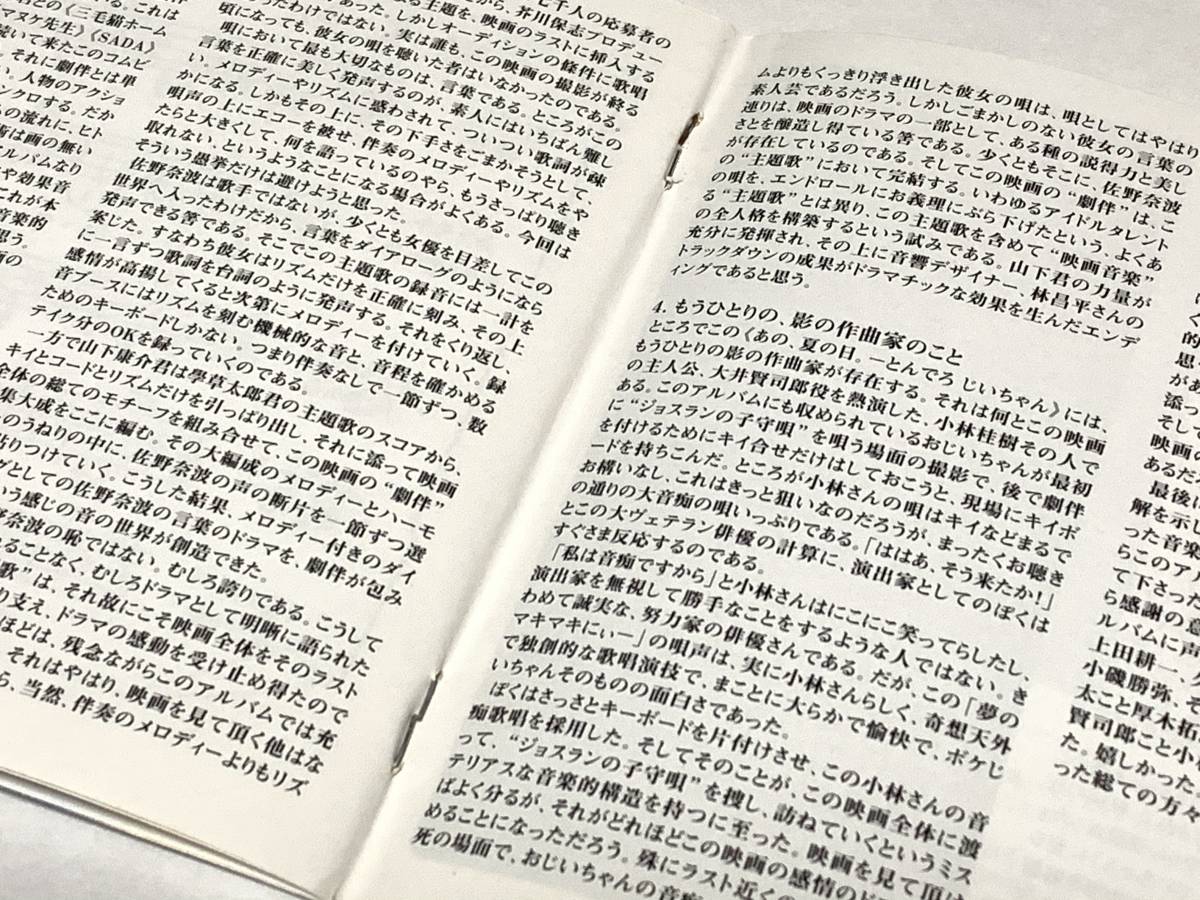 これは
名との《三毛猫ホーム
アマヌケ先生》《SADA》
続いて来たこのコムビ
い。それに劇伴とは単
人物のアクショ
ンクロする。だか
の流れに、ヒト
術は画の無い
ルバムなり
や効果音
これが本
音楽的
思う。
画の
七千人の応募者の
芥川保志プロデュー
る主題を、映画のラストに挿入する
あった。しかしオーディションの條件に歌唱
ったわけではない。実は誰も、この映画の撮影が終る
頃になっても、彼女の唄を聴いた者はいなかったのである。
唄において最も大切なものは、言葉である。ところがこの
言葉を正確に美しく発声するのが、素人にはいちばん難し
い。メロディーやリズムに惑わされて、ついつい歌詞が疎
かになる。しかもその上に、その下手さをごまかそうとして
唄声の上にエコーを被せ、伴奏のメロディーやリズムをや
たらと大きくして、何を語っているのやら、もうさっぱり聴き
取れない、というようなことになる場合がよくある。今回は
そういう愚挙だけは避けようと思った。
佐野奈波は歌手ではないが、少くとも女優を目差してこの
世界へ入ったわけだから、言葉をダイアローグのようになら
発声できる筈である。そこでこの主題歌の録音には一計を
案じた。すなわち彼女はリズムだけを正確に刻み、その上
に一言ずつ歌詞を台詞のように発声する。それをくり返し、
感情が高揚してくると次第にメロディーを付けていく。録
音ブースにはリズムを刻む機械的な音と、音程を確かめる
ためのキーボードしかない。つまり伴奏なしで一節ずつ、数
テイク分のOKを録っていくのである。
一方で山下康介君は學草太郎君の主題歌のスコアから、
キイとコードとリズムだけを引っぱり出し、それに添って映画
全体の総てのモチーフを組み合せて、この映画の“劇伴”
集大成をここに編む。その大編成のメロディーとハーモ
のうねりの中に、佐野奈波の声の断片を一節ずつ選
貼りつけていく。こうした結果、メロディー付きのダイ
グとしての佐野奈波の言葉のドラマを、劇伴が包み
いう感じの音の世界が創造できた。
野奈波の恥ではない。むしろ誇りである。こうして
ることなく、むしろドラマとして明晰に語られた
歌”は、それ故にこそ映画全体をそのラスト
り支え、ドラマの感動を受け止め得たので
ほどは、残念ながらこのアルバムでは充
それはやはり、映画を見て頂く他はな
ら、当然、伴奏のメロディーよりもリズ
ムよりもくっきり浮き出した彼女の唄は、唄としてはやはり
素人芸であるだろう。しかしごまかしのない彼女の言葉の
連りは、映画のドラマの一部として、ある種の説得力と美し
さとを醸造し得ている筈である。少くともそこに、佐野奈波
が存在しているのである。そしてこの映画の“劇伴”は、こ
の“主題歌”において完結する。いわゆるアイドルタレント
の唄を、エンドロールにお義理にぶら下げたという、よくあ
る“主題歌”とは異り、この主題歌を含めて“映画音楽”
の全人格を構築するという試みである。山下君の力量が
充分に発揮され、その上に音響デザイナー、林昌平さんの
トラックダウンの成果がドラマチックな効果を生んだエンデ
ィングであると思う。
4. もうひとりの、影の作曲家のこと
ところでこの《あの、夏の日。―とんでろ じいちゃん》には、
もうひとりの影の作曲家が存在する。それは何とこの映画
の主人公、大井賢司郎役を熱演した、小林桂樹その人で
ある。このアルバムにも収められているおじいちゃんが最初
に“ジョスランの子守唄”を唄う場面の撮影で、後で劇伴
を付けるためにキイ合せだけはしておこうと、現場にキイボ
ードを持ちこんだ。ところが小林さんの唄はキイなどまるで
お構いなし、これはきっと狙いなのだろうが、まったくお聴き
の通りの大音痴の唄いっぷりである。「ははあ、そう来たか!」
とこの大ヴェテラン俳優の計算に、演出家としてのぼくは
すぐさま反応するのである。
「私は音痴ですから」と小林さんはにこにこ笑ってらしたし、
演出家を無視して勝手なことをするような人ではない。き
わめて誠実な、努力家の俳優さんである。だが、この「夢の
マキマキにぃー」の唄声は、実に小林さんらしく、奇想天外
で独創的な歌唱演技で、まことに大らかで愉快で、ボケじ
いちゃんそのものの面白さであった。
ぼくはさっさとキーボードを片付けさせ、この小林さんの音
痴歌唱を採用した。そしてそのことが、この映画全体に渡
って、“ジョスランの子守唄”を捜し、訪ねていくというミス
テリアスな音楽的構造を持つに至った。映画を見て頂け
ばよく分るが、それがどれほどこの映画の感情のド
めることになっただろう。殊にラスト近くの
死の場面で、おじいちゃんの音痴
く
的
思
が
添っ
そして
映画の
あるだ
最後
解を示し
った音楽
らこのアル
て下さった
ら感謝の意
ルバムに声
上田耕一、
小磯勝弥、そ
太こと厚木拓
賢司郎こと小
た。嬉しかった。
った総ての方々